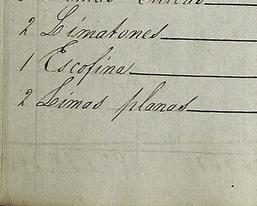 2 Limatones
1 Escofina
2 Limas planas